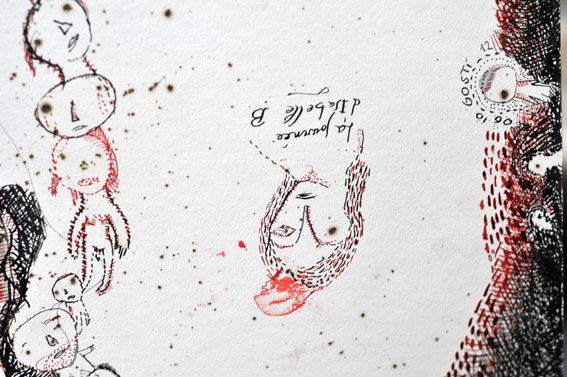 La journée
d'Isabelle B
06 10 GOSTI- 12